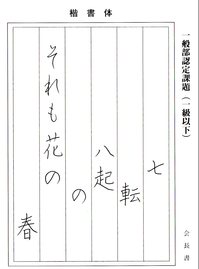 楷書体
一般部認定課題(一級以下)
会長書
七
転
八起
の
それも花の
春